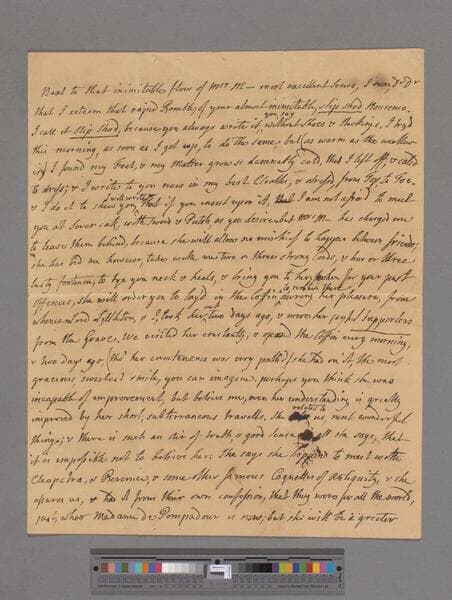 Next to that inimitable flow of Mrs M— most excellent Sense, I own
that I esteem that rapid Ramble, of your almost inimitable, slip shod Nonsence.
I call it slip shod, because you always write it, you say without Shoes & Stockings, I try'd
this morning, as soon as I got up, to do the same, but (as warm as the weather
is) I found my Feet, & my Matter grow so damnably cold, that I left off, & call'd
to dress; & I write to you now in my best Cloaths, & dress'd, from Top to Toe.
& I do it to shew you, I will write that if you insist upon it, that I am not afraid to meet
you at Seven oak, with Sword & Pistol, as you desire, but Mrs M— has charged me
to leave them behind, because she will allow no mischief to happen between friends;
she has bid me however, take with me two or three strong Cords, & two or three
lusty footmen, to tye you neck & heels, & bring you to her, for your past
offences, she will order you to be lay'd in the Coffin during her pleasure, from
whence Lord Lyttleton, & I, took her, two days ago, & were her joyful supporters
from the Grave, We visited her constantly, & open'd the Coffin every morning,
& two days ago, (tho' her countenance was very pallid) she had on it, the most
gracious sweetest smile, you can imagine, perhaps you think she was
incapable of improvement, but believe me, even her understanding is greatly
improved by her short, subterraneous travells. She relates to us most wonderful
things; & there is such an air of truth, & good sense in all she says, that
it is impossible not to believe her. She says she happen'd to meet with
Cleopatra, & Berenice, & some other famous Coquettes of Antiquity, & she
assures us, & had it from their own confession, that they were for all the world,
just what Madame de Pompadour is now; but she will be a greater